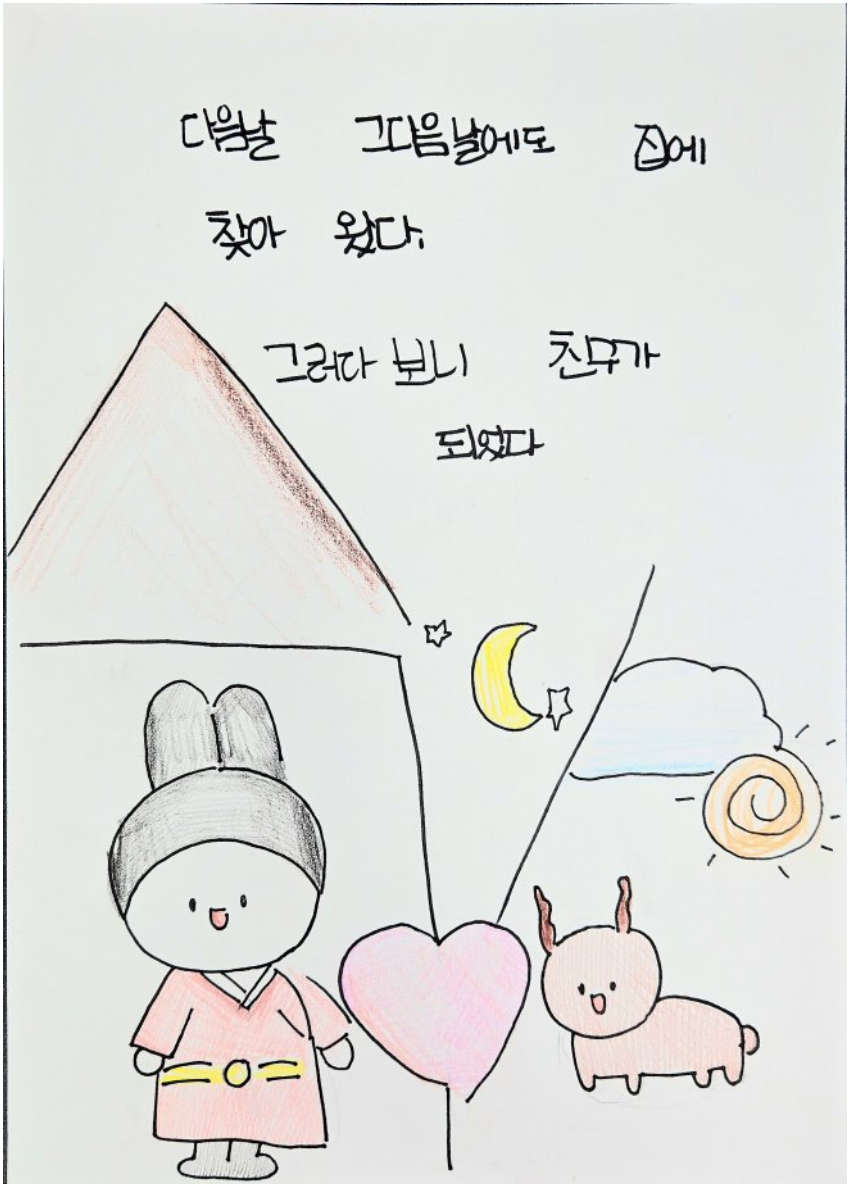 다음날 그다음날에도 집에
찾아 왔다.
그러다 보니 친구가
되었다